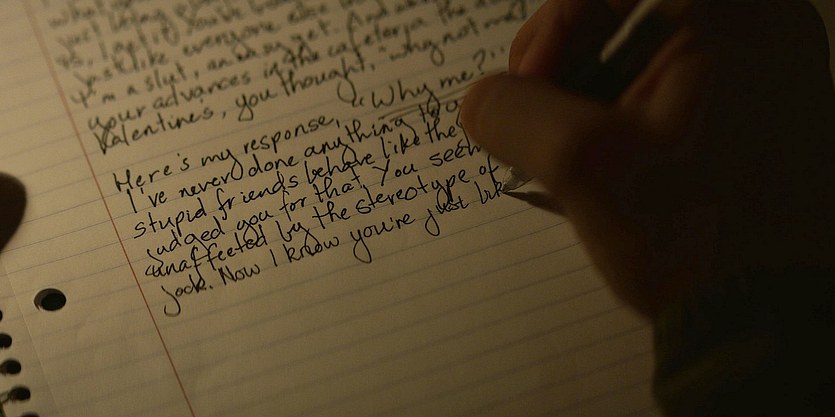 just like everyone else
I'm a slut, an easy get. And
your advances in the cafeteria the
Valentine's, you thought, "why not me?"
Here's my response, "Why me?"
I've never done anything to
stupid friends behave like the
judged you for that. You seem
unaffected by the stereotype of
jock. Now I know you're just like